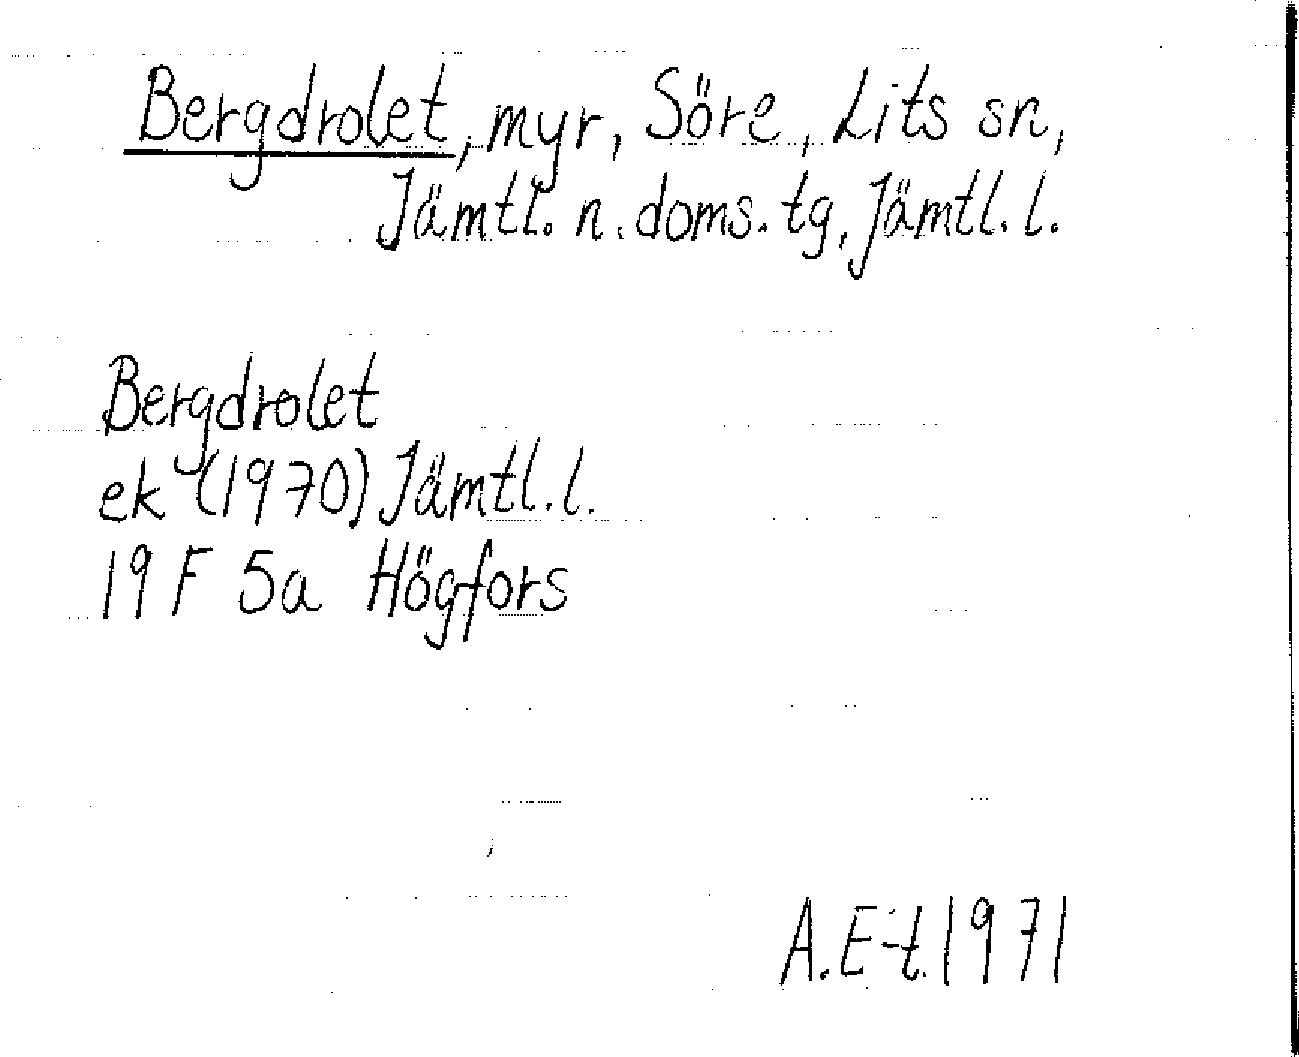 Bergdrolet, myr, Söre, Lits sn,
Jämtl. n. doms. tg, Jämtl. l.
Bergdrolet
ek (1970) Jämtl. l.
19 F 5a Högfors
A.E-t.1971